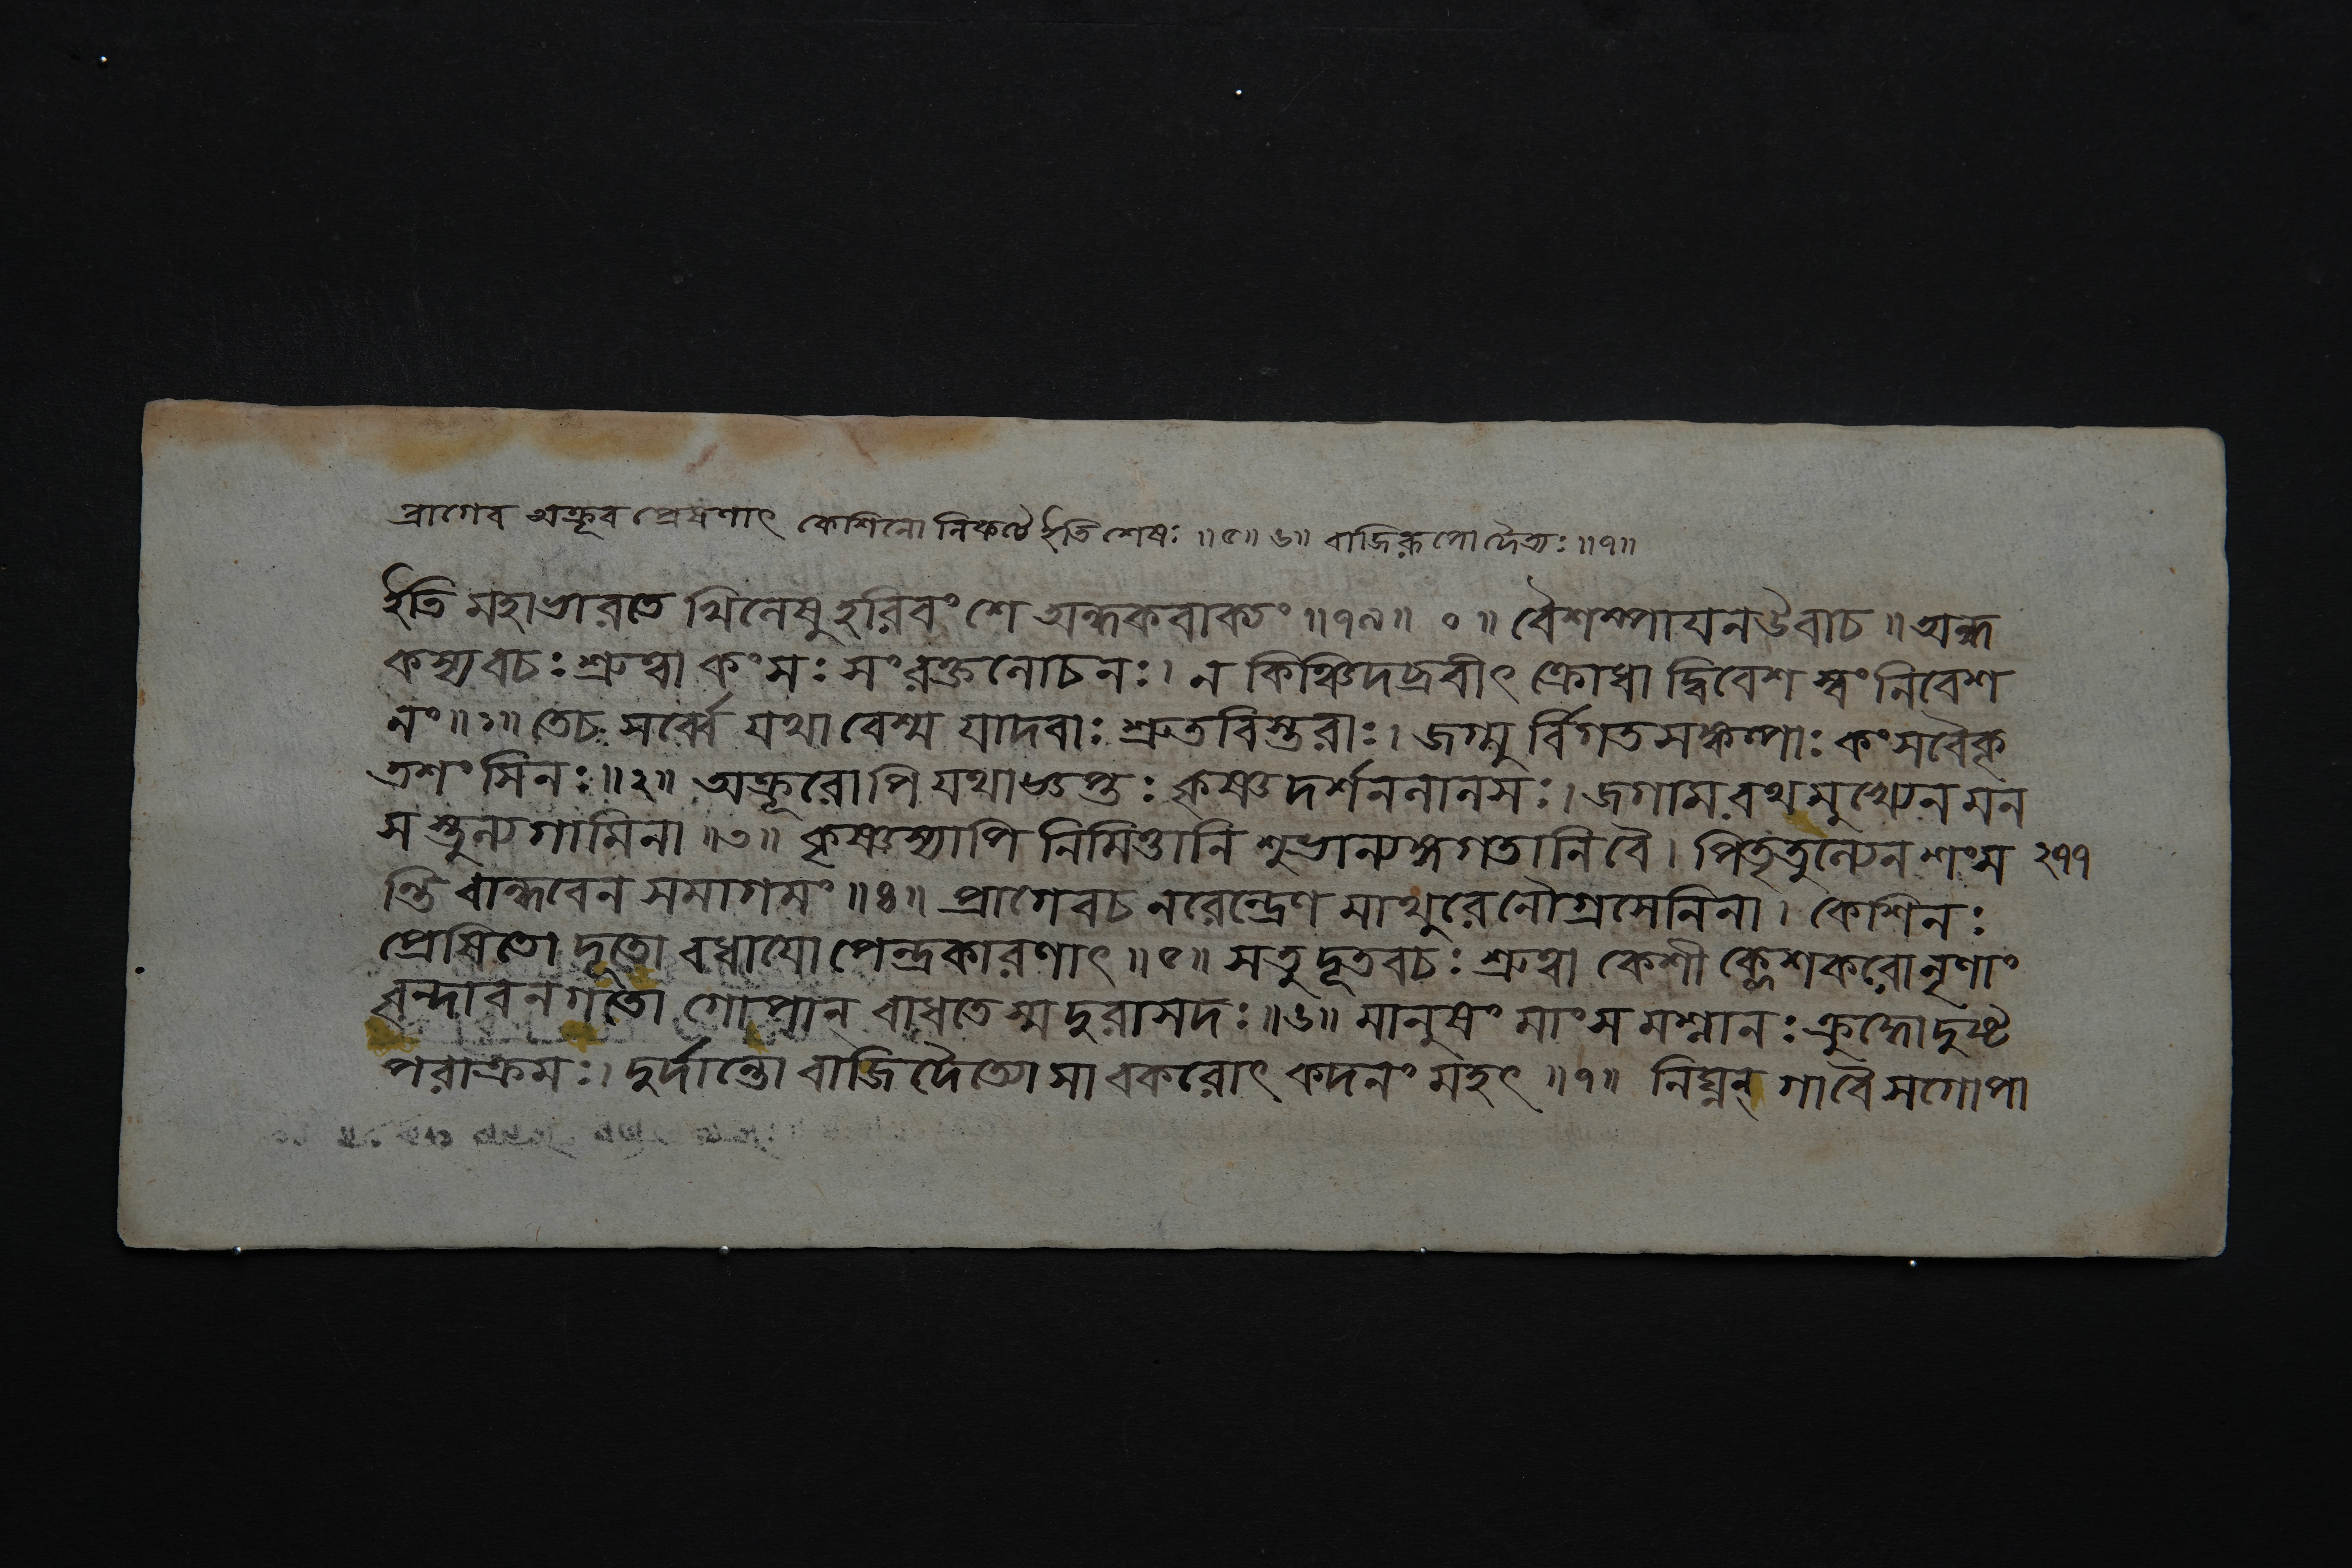 প্রাগেব অক্রূর প্রেষণাৎ কেশিনো নিকটে ইতি শেষঃ ॥৫॥ ৬॥ বাজিরূপো দৈত্যঃ ॥৭॥
ইতি মহাভারতে খিলেষু হরিবংশে অন্ধকবাক্যং ॥৭৯॥ ০ ॥ বৈশম্পায়ন উবাচ ॥ অন্ধ
কস্য বচঃ শ্রুত্বা কংসঃ সংরক্তলোচনঃ। ন কিঞ্চিদব্রবীৎ ক্রোধা দ্বিবেশ স্বং নিবেশ
নং ॥১॥ তে চ সর্ব্বে যথা বেশ্ম যাদবাঃ শ্রুতবিস্তরাঃ। জগ্মু র্বিগতসঙ্কল্পাঃ কংসবৈকৃ
তশংসিনঃ ॥২॥ অক্রূরোপি যথাজ্ঞপ্তঃ কৃষ্ণদর্শনলালসঃ। জগাম রথমুখ্যেন মন
সস্তুল্যগামিনা ॥৩॥ কৃষ্ণস্যাপি নিমিত্তানি শুভান্যঙ্গগতানি বৈ। পিতৃতুল্যেন শংস ২৭৭
ন্তি বান্ধবেন সমাগমং ॥৪॥ প্রাগেব চ নরেন্দ্রেণ মাথুরেণৌগ্রসেনিনা। কেশিনঃ
প্রেষিতো দূতো বধায়োপেন্দ্রকারণাৎ ॥৫॥ স তু দূতবচঃ শ্রুত্বা কেশী ক্লেশকরো নৃণাং
বৃন্দাবনগতো গোপান্ বাধতে স্ম দুরাসদঃ ॥৬॥ মানুষং মাংসমশ্নানঃ ক্রুদ্ধো দুষ্ট
পরাক্রমঃ। দুর্দান্তো বাজিদৈত্যো সাবকরোৎ কদনং মহৎ ॥৭॥ নিঘ্নন্ গা বৈ সগোপা